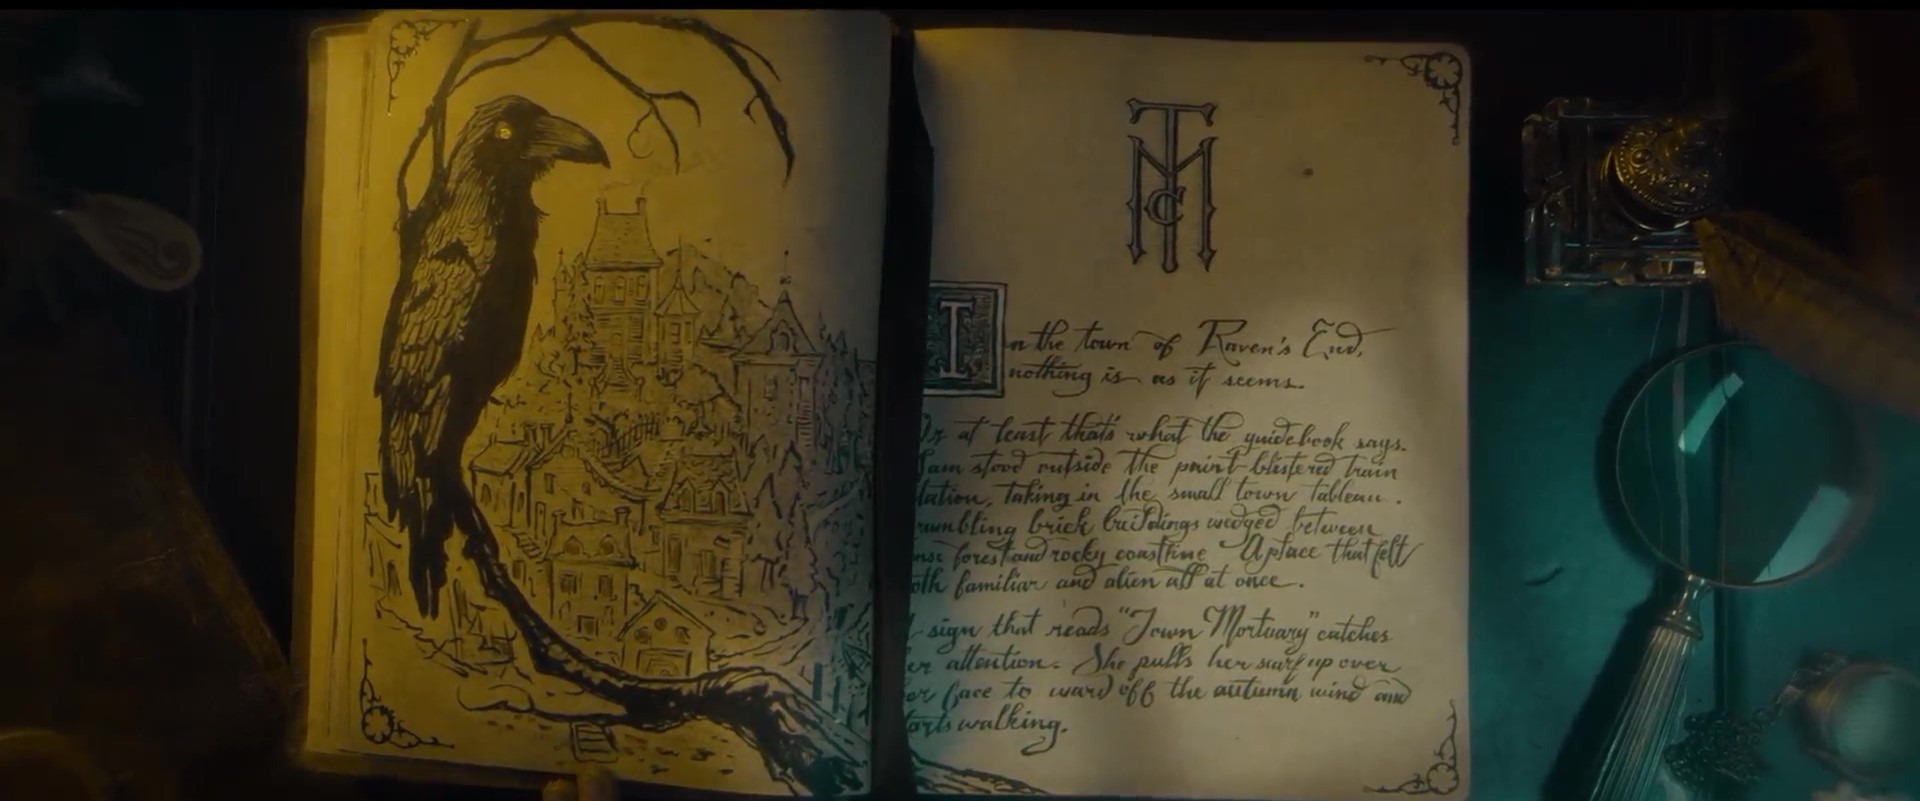 TMC
In the town of Raven's End,
nothing is as it seems.
Or at least that's what the guidebook says.
I am stood outside the paint-blistered train
station, taking in the small town tableau.
rumbling brick buildings wedged between
nse forest and rocky coastline. A place that felt
oth familiar and alien all at once.
A sign that reads "Town Mortuary" catches
er attention. She pulls her scarf up over
her face to ward off the autumn wind and
tarts walking.